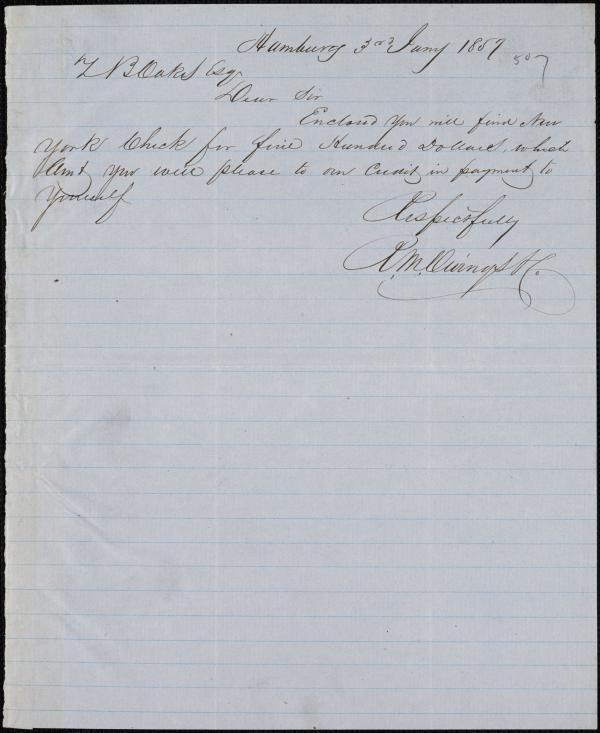 Hamburg 3rd Jany 1857 507
Z B Oakes Esq
Dear Sir
Enclosed You will find New
York Check for five Hundred Dollars, which
Amt you will please to our Credit in payment to
Yourself
Respectfully
R. M. Owings & Co.